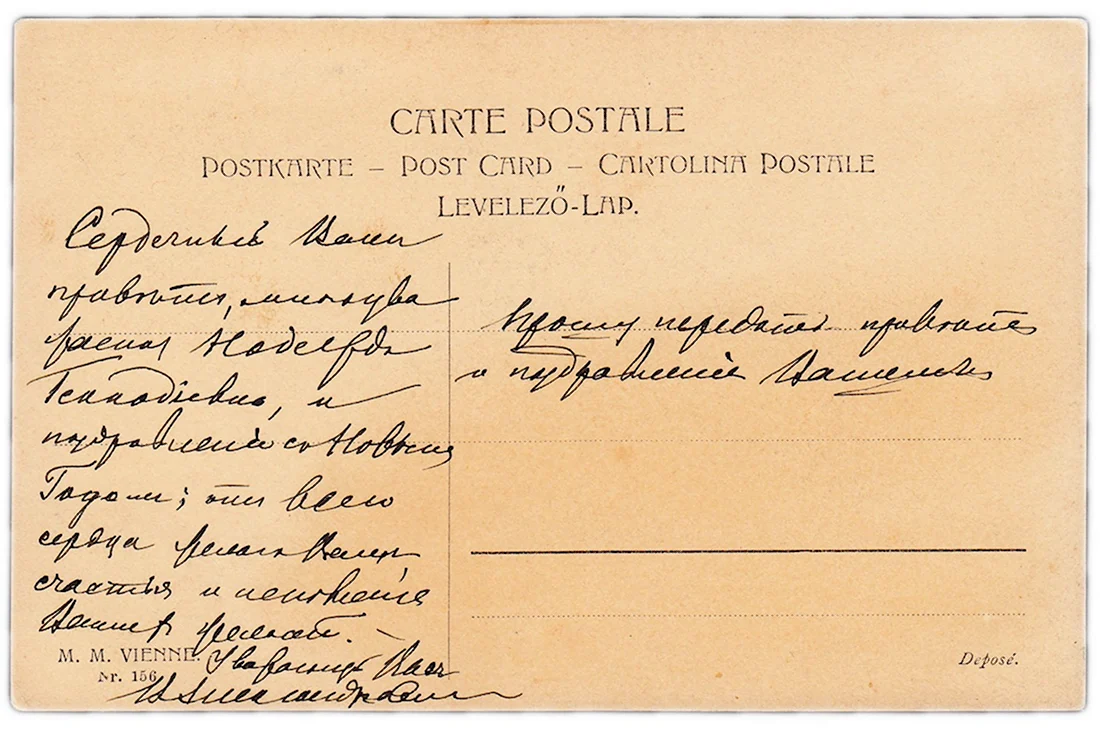 CARTE POSTALE
POSTKARTE – POST CARD – CARTOLINA POSTALE
LEVELEZŐ-LAP.
Сердечный Вамъ
привѣтъ, многоува
жаемая Надежда
Геннадіевна, и
поздравленіе съ Новымъ
Годомъ; отъ всего
сердца желаю Вамъ
счастья и исполненія
Вашихъ желаній. –
Уважающій Васъ
Прошу передать привѣтъ
и поздравленіе Вашимъ
M. M. VIENNE.
Nr. 156
Deposé.